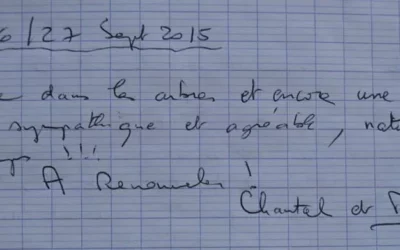 6/27 Sept 2015
dans les arbres et encore une
sympathique et agréable,
!!!
A Renouveler !
Chantal et